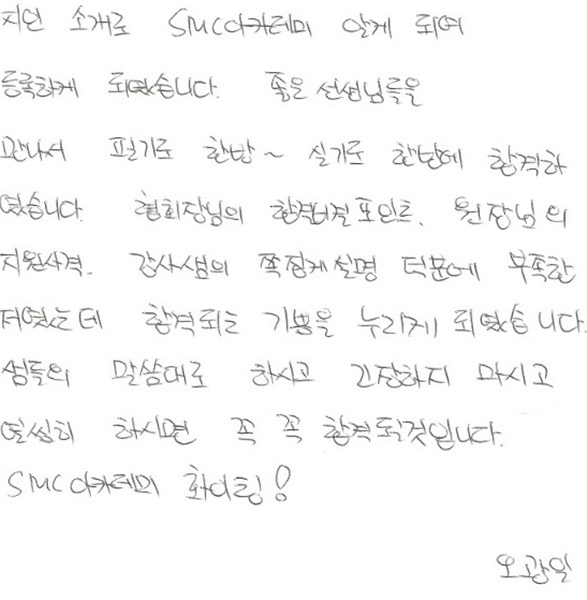 지인 소개로 SMC아카데미 알게 되어
등록하게 되었습니다. 좋은 선생님들을
만나서 필기도 한방~ 실기도 한번에 합격하
였습니다. 협회장님의 합격비결 포인트, 원장님의
지원사격. 강사샘의 쪽집게 설명 덕분에 부족한
저였는데 합격되는 기쁨을 누리게 되였습니다.
샘들의 말씀대로 하시고 긴장하지 마시고
열씸히 하시면 꼭 꼭 합격될것입니다.
SMC아카데미 화이팅!
오광일